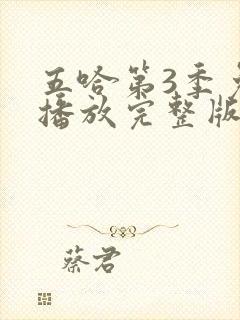 五哈第3季
播放完整版
蔡君